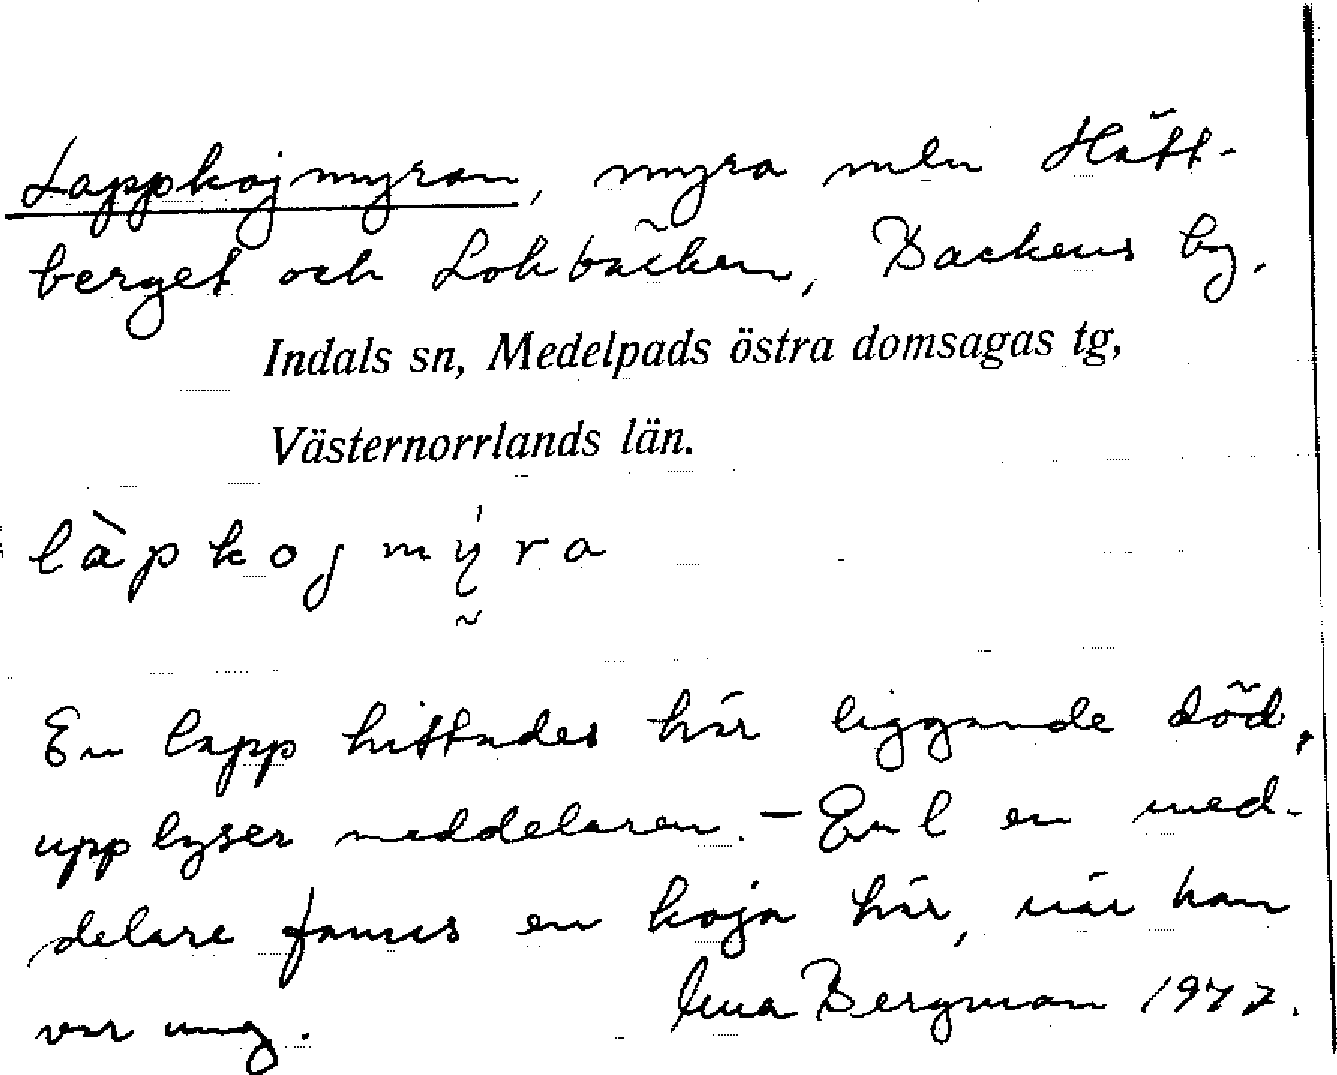 Lappkojmyran, myra mln Hätt-
berget och Lokbäcken, Backens by.
Indals sn, Medelpads östra domsagas tg,
Västernorrlands län.
làpkojmýra
En lapp hittades här liggande död,
upplyser meddelaren. – Enl en med-
delare fanns en koja här, när han
var ung. Bergman 1977.